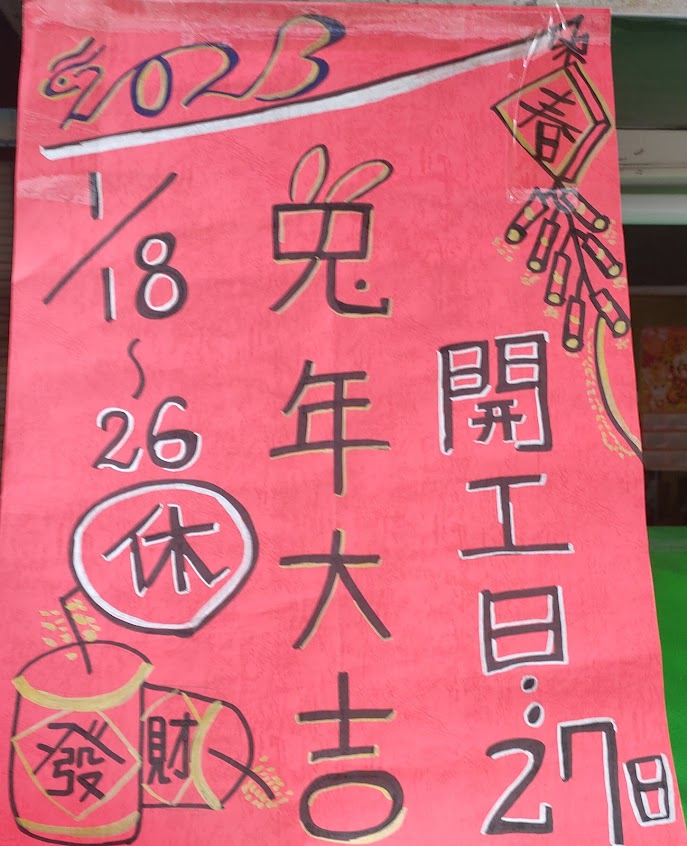 2023
春
開工日:27日
兔年大吉
1/18~26
休
發
財